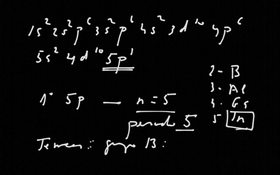 1s² 2s² p⁶ 3s² p⁶ 4s² 3d¹⁰ 4p⁶
5s² 4d¹⁰ 5p¹
1° 5p — n = 5
periodo 5
2 - B
3 - Al
4 - Gs
5 In
grupo 13: